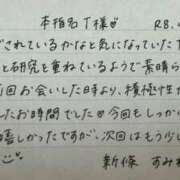 本指名T様♡ R8.
されているかなと気になっていた
と研究を重ねているようで素晴ら
回お会いした時より、積極性が
お時間でした♡今回もしっか
嬉しかったですが、次回はもう少し
新條 すみれ